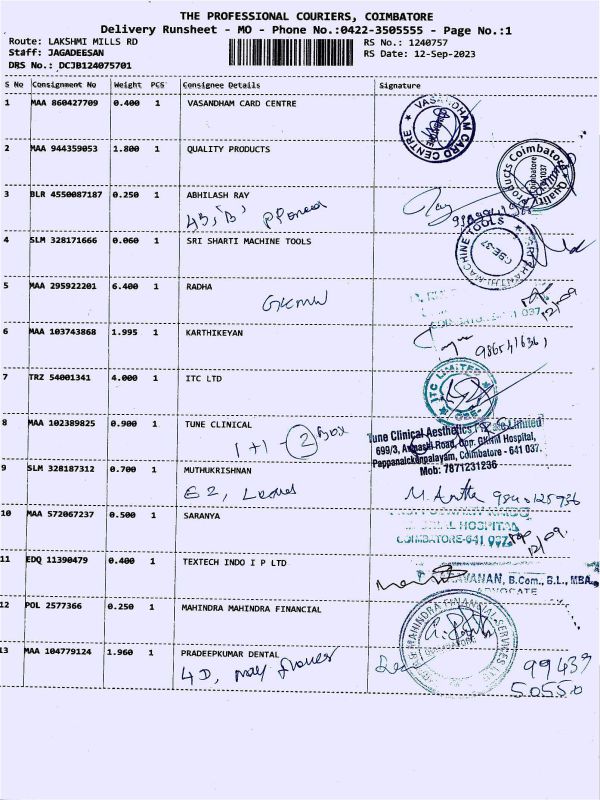 THE PROFESSIONAL COURIERS, COIMBATORE
Delivery Runsheet - MO - Phone No.:0422-3505555 - Page No.:1
Route: LAKSHMI MILLS RD RS No.: 1240757
Staff: JAGADEESAN RS Date: 12-Sep-2023
DRS No.: DCJB124075701
S No Consignment No Weight PCS Consignee Details Signature
1 MAA 860427709 0.400 1 VASANDHAM CARD CENTRE
VASANDHAM CARD CENTRE
2 MAA 944359053 1.800 1 QUALITY PRODUCTS
Quality Products Coimbatore
Coimbatore
641 037
3 BLR 4550087187 0.250 1 ABHILASH RAY
43, 'B'
4 SLM 328171666 0.060 1 SRI SHARTI MACHINE TOOLS
MACHINE TOOLS
CBE-37
5 MAA 295922201 6.400 1 RADHA
GKMW
641 037
12/09
6 MAA 103743868 1.995 1 KARTHIKEYAN
7 TRZ 54001341 4.000 1 ITC LTD
ITC LIMITED
8 MAA 102389825 0.900 1 TUNE CLINICAL
1+1 - 2 Box
Tune Clinical Aesthetics Private Limited
699/3, Avinashi Road, Opp. GKNM Hospital,
Pappanaickenpalayam, Coimbatore - 641 037.
Mob: 7871231236
9 SLM 328187312 0.700 1 MUTHUKRISHNAN
E2,
10 MAA 572067237 0.500 1 SARANYA
HOSPITAL
COIMBATORE-641 037
12/09.
11 EDQ 11390479 0.400 1 TEXTECH INDO I P LTD
B.Com., B.L., MBA.
ADVOCATE
12 POL 2577366 0.250 1 MAHINDRA MAHINDRA FINANCIAL
MAHINDRA FINANCIAL SERVICES LTD
13 MAA 104779124 1.960 1 PRADEEPKUMAR DENTAL
4D, may flower
99439
50550